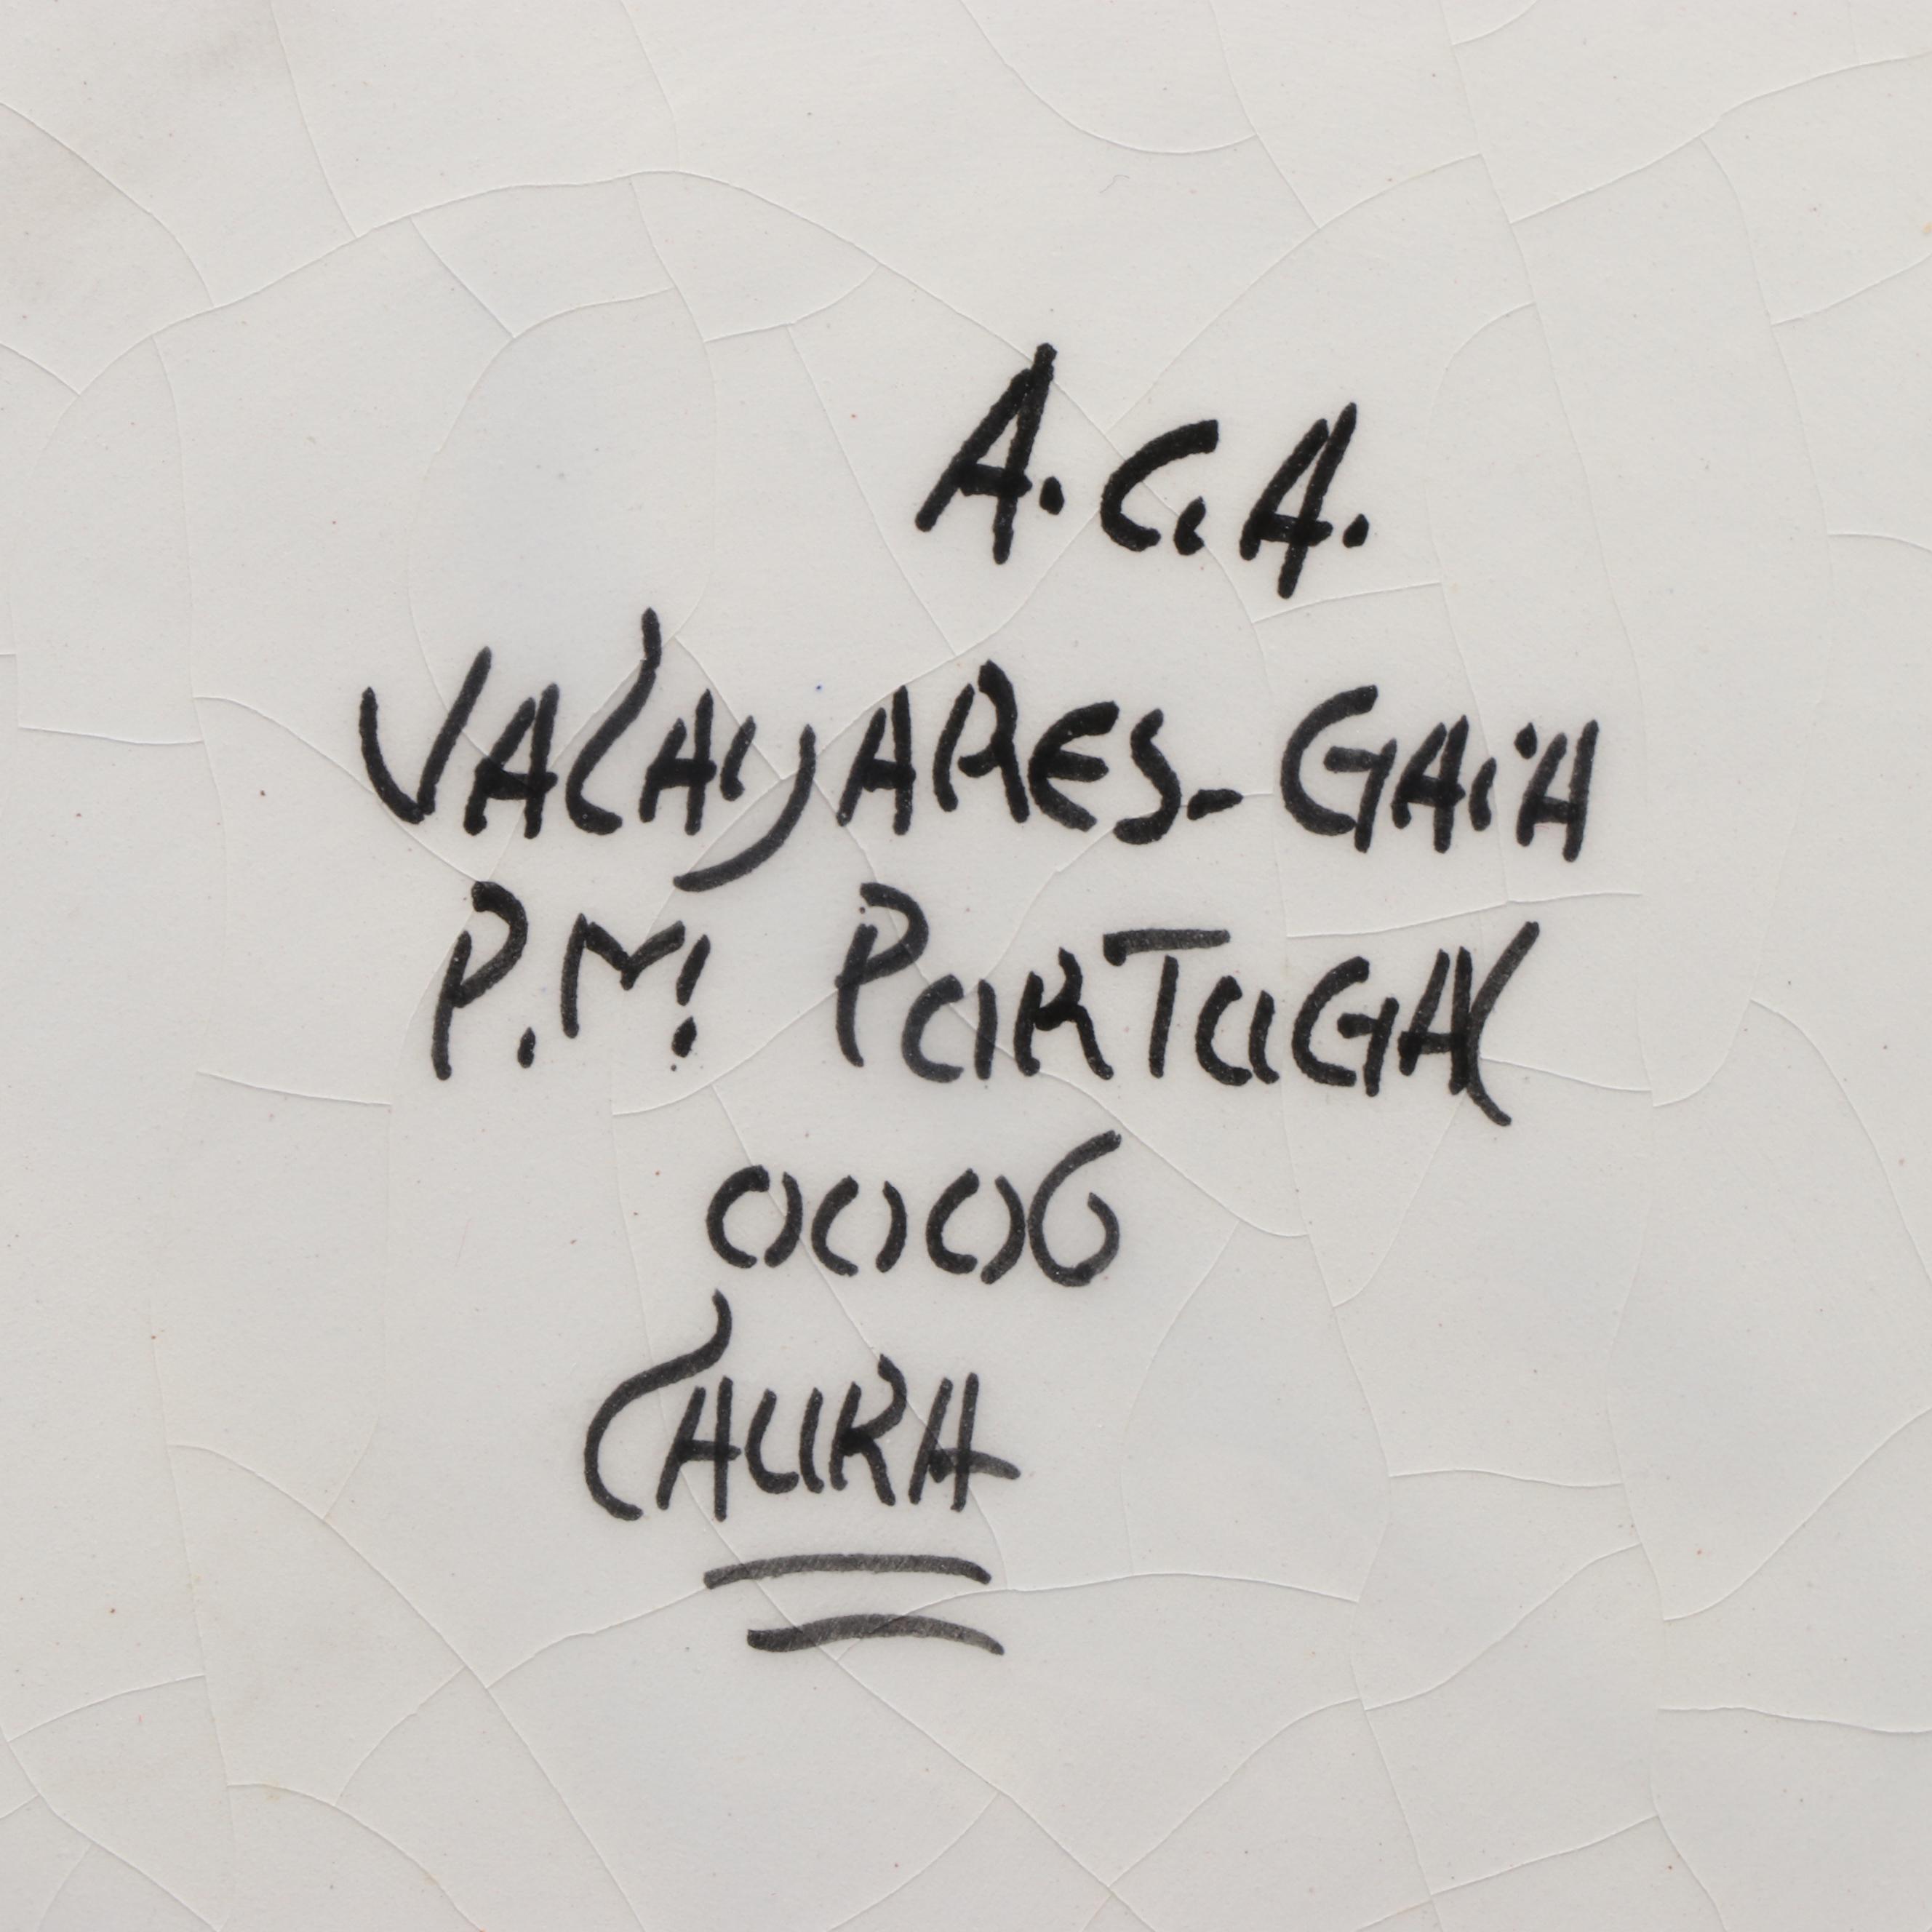 A.C.A.
VALAIJARES-GAIA
P.M. PORTUGAL
0006
LAURA